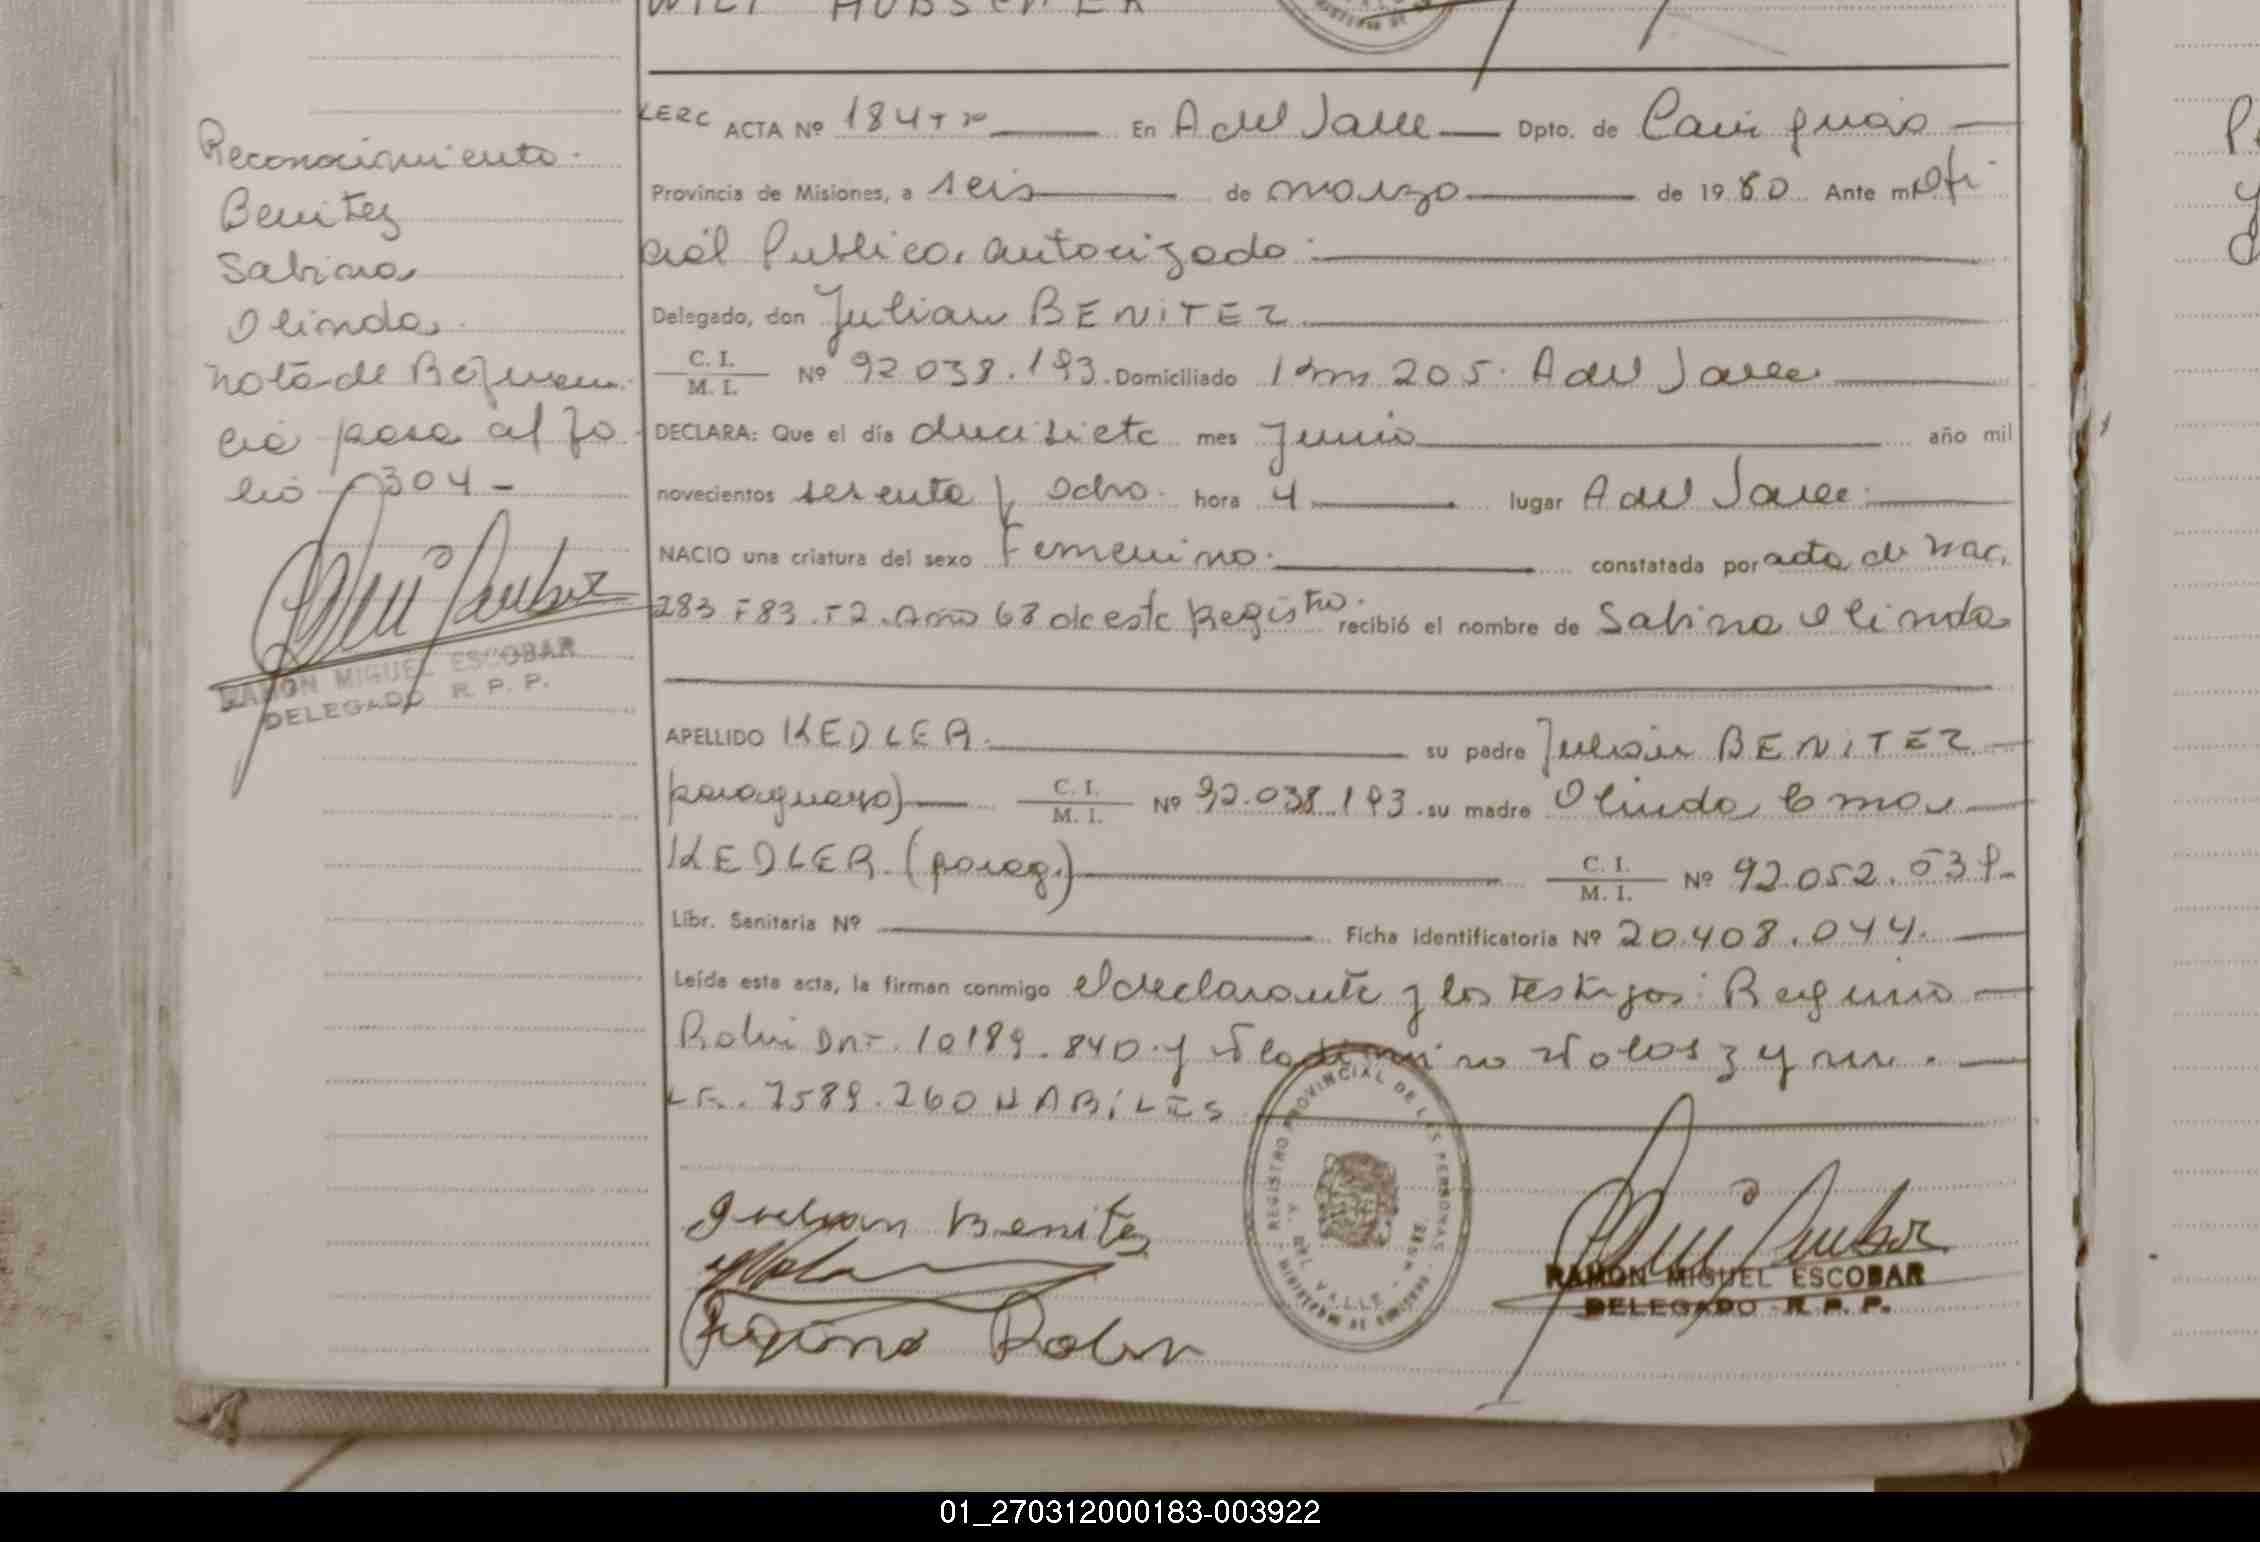 WILI HUBSCHER
LERC ACTA Nº 184 Tº 2º En A del Valle Dpto. de Cainguás
Provincia de Misiones, a seis de marzo de 1980 Ante mi Ofi
cial Publico, autorizado
Delegado, don Julian BENITEZ
C. I. / M. I. Nº 92 038.193. Domiciliado Km 205. A del Valle
DECLARA: Que el día diecisiete mes Junio año mil
novecientos sesenta y ocho. hora 4 lugar A del Valle.
NACIO una criatura del sexo Femenino. constatada por acta de Nac.
283 F83. T2. Año 68 de este Registro. recibió el nombre de Sabina Olinda
APELLIDO KEDLER. su padre Julián BENITEZ
paraguayo) C. I. / M. I. Nº 92.038.193. su madre Olinda
KEDLER. (parag.) C. I. / M. I. Nº 92.052.
Libr. Sanitaria Nº Ficha identificatoria Nº 20.408.044.
Leída esta acta, la firman conmigo el declarante y los testigos: Reginio
Rolin Dni. 10189.840. y Wladimiro
LE. 7589.260 HABILES
Julian Benitez
Rolin
REGISTRO PROVINCIAL DE LAS PERSONAS
A. DEL VALLE
RAMON MIGUEL ESCOBAR
DELEGADO R. P. P.
Reconocimiento.
Benitez
Sabina
Olinda.
nota de Referen
cia pasa al fo
lio 304 -
RAMON MIGUEL ESCOBAR
DELEGADO R. P. P.
01_270312000183-003922